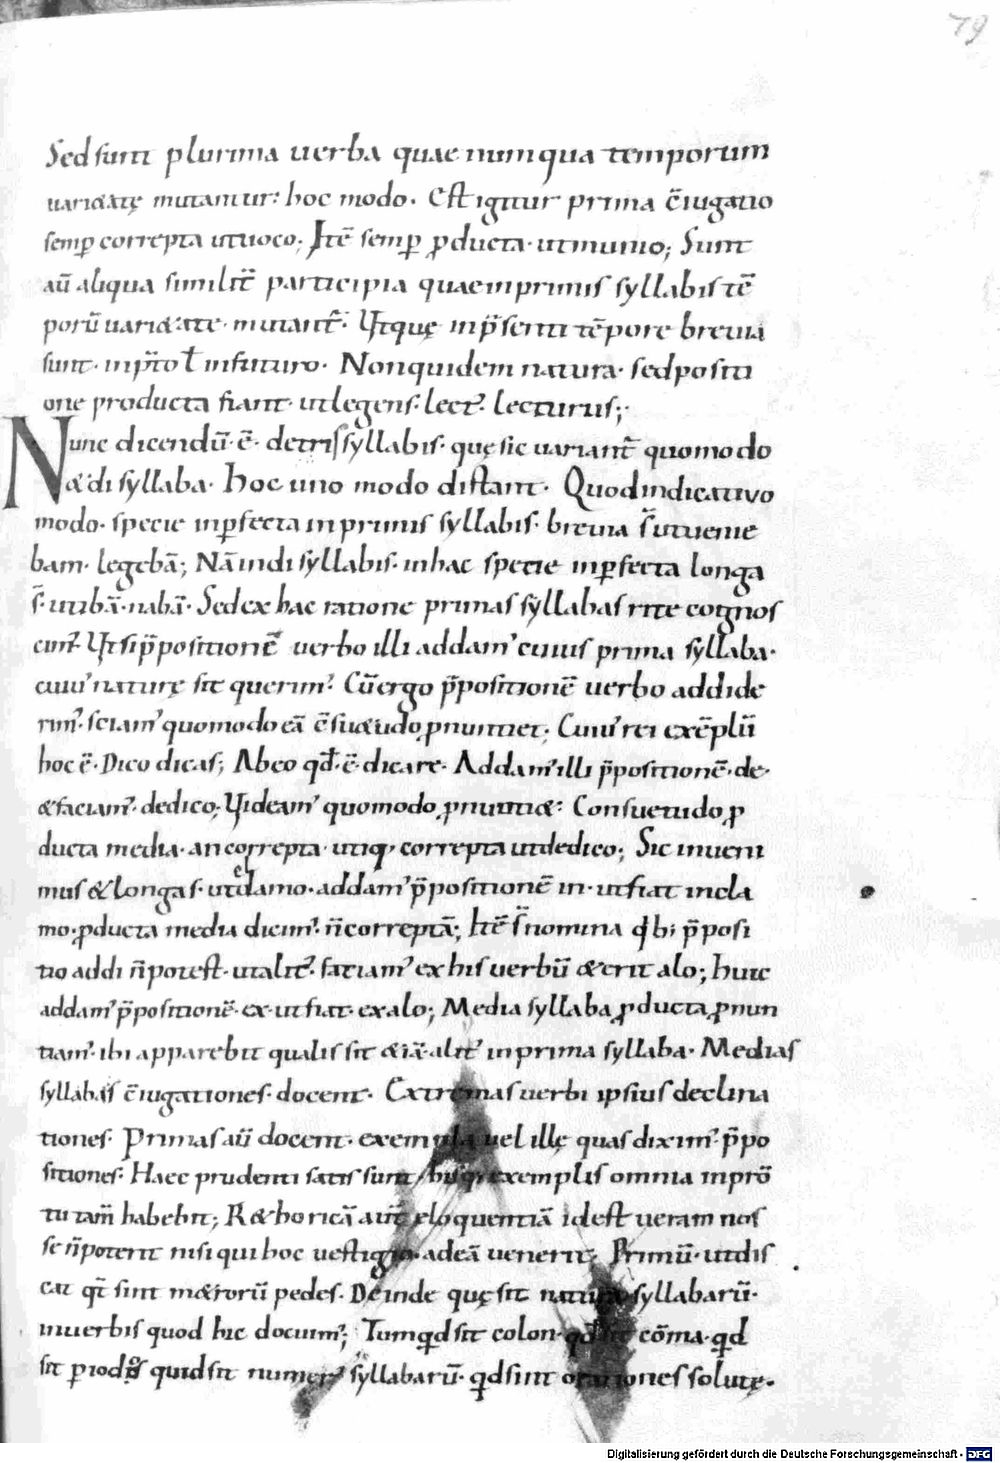 79
Sed sunt plurima uerba quae numqua temporum
uari&atę mutantur: hoc modo. Est igitur prima c̄iugatio
semꝑ correpta ut uoco; Itē semꝑ ꝓducta· ut munio; Sunt
aū aliqua similit̄ participia quae in primis syllabis tē
porū uari&ate· mutant̄. Utquę in p̄senti tēpore breuia
sunt· in p̄to ł in futuro. Non quidem natura· sed positi
one producta fiant· ut legens· lect᾿. lecturus;
Nunc dicendū· ē· de tris syllabis· quę sic uariant̄ quomodo
& disyllaba. hoc uno modo distant. Quod indicatiuo
modo· specie inꝑfecta in primis syllabis· breuia s̄ ut uenie
bam· legebā; Nā in disyllabis· in hac specie inꝑfecta longa
s̄· ut ibā· nabā. Sed ex hac ratione primas syllabas rite cognos
cim᾿. Ut si p̄positionē uerbo illi addam᾿ cuius prima syllaba·
cuiu᾿ naturę sit querim᾿. Cū ergo p̄positionē uerbo addide
rim᾿. sciam᾿ quomodo eā c̄su&udo ꝓnuntiet; Cuiu᾿ rei exēplū
hoc ē· Dico dicas; Ab eo qđ· ē· dicare. Addam᾿ illi p̄positionē· de·
& faciam᾿. dedico; Uideam᾿ quomodo ꝓnunti&: Consuetudo ꝓ
ducta media· an correpta· utiq· correpta ut dedico; Sic inueni
mus & longas· ut clamo· addam᾿ p̄positionē in· ut fiat incla
mo· ꝓducta media dicim᾿. n̄ correptā; Itē s̄ nomina qb; p̄posi
tio addi n̄ potest· ut alit᾿. faciam᾿ ex his uerbū & erit alo; huic
addam᾿ p̄positionē· ex· ut fiat· exalo; Media syllaba ꝓducta ꝓnun
tiam᾿. ibi apparebit qualis sit &iā· alit᾿ in prima syllaba. Medias
syllabas c̄iugationes· docent. Extremas uerbi ipsius declina
tiones. Primas aū docent· exempla uel illę quas dixim᾿ p̄po
sitiones. Haec prudenti satis sunt hisq; exemplis omnia in prō
tu tam̄ habebit; R&horicā aut̄ eloquentiā id est ueram nos
se n̄ poterit nisi qui hoc uestigio· ad eā uenerit. Primū· ut dis
cat qt̄ sint m&rorū pedes. Deinde quę sit natura syllabarū·
in uerbis quod hic docuim᾿; Tum qd sit colon· qd sit cōma· qd
sit ꝑiodos quid sit numer᾿ syllabarū· qd sint orationes solutę.
Digitalisierung gefördert durch die Deutsche Forschungsgemeinschaft - DFG